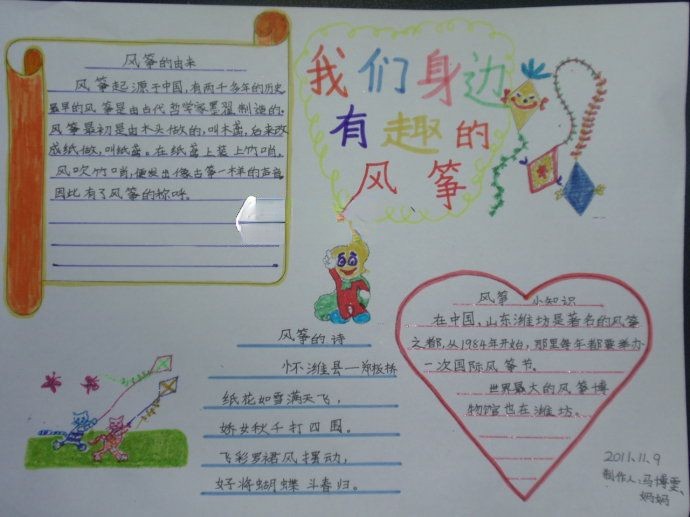 风筝的由来
风筝起源于中国,有两千多年的历史
最早的风筝是由古代哲学家墨翟制造的。
风筝最初是由木头做的,叫木鸢,后来改
成纸做,叫纸鸢。在纸鸢上装上竹哨,
风吹竹哨,便发出像古筝一样的声音
因此有了风筝的称呼。
我们身边
有趣的
风筝
风筝的诗
怀潍县—郑板桥
纸花如雪满天飞,
娇女秋千打四围。
飞彩罗裙风摆动,
好将蝴蝶斗春归。
风筝小知识
在中国,山东潍坊是著名的风筝
之都,从1984年开始,那里每年都要举办
一次国际风筝节。
世界最大的风筝博
物馆也在潍坊。
2011.11.9
制作人:马博雯、
妈妈